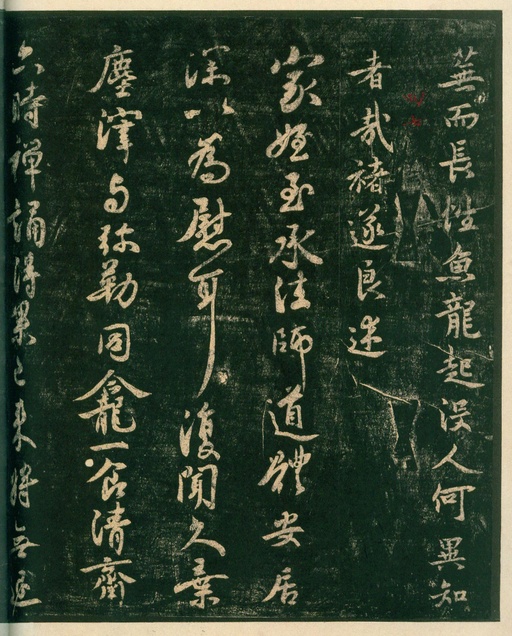 蕪而長性魚龍起沒人何異知
者哉褚遂良述
家姪至承法師道體安居
深以為慰耳復聞久棄
塵滓与弥勒同龕一食清齋
六時禪誦得果已来將無退